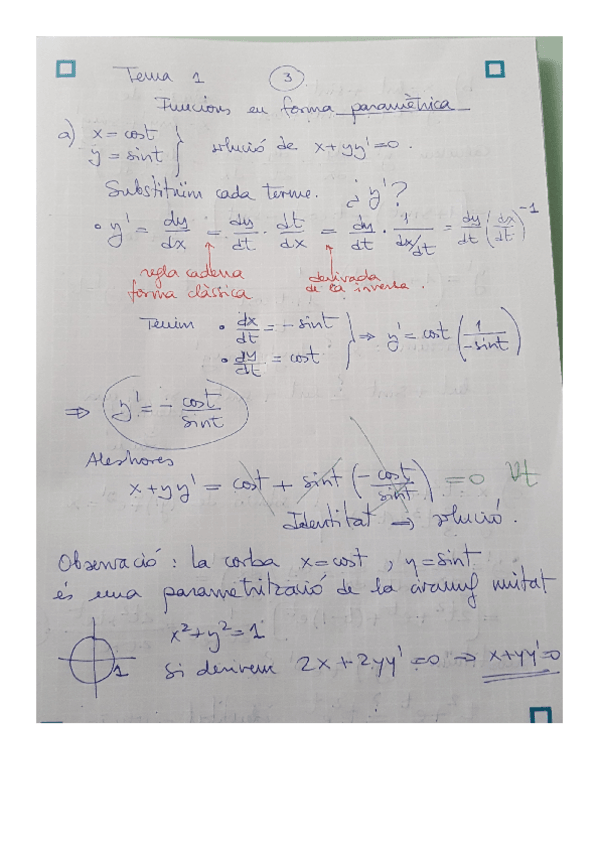 Tema 1 3
Funcions en forma paramètrica
a) x = cost
y = sint } solució de x+yy'=0.
Substituïm cada terme. ¿y'?
• y' = dy/dx = dy/dt · dt/dx = dy/dt · 1/(dx/dt) = dy/dt (dx/dt)^-1
regla cadena derivada
forma clàssica de la inversa.
Tenim • dx/dt = -sint
• dy/dt = cost } ⇒ y' = cost (1/-sint)
⇒ y' = - cost/sint
Aleshores
x+yy' = cost + sint (- cost/sint) = 0 ∀t
Identitat → solució.
Observació: la corba x=cost, y=sint
és una parametrització de la circumf unitat
x²+y²=1
1 Si derivem 2x+2yy'=0 ⇒ x+yy'=0